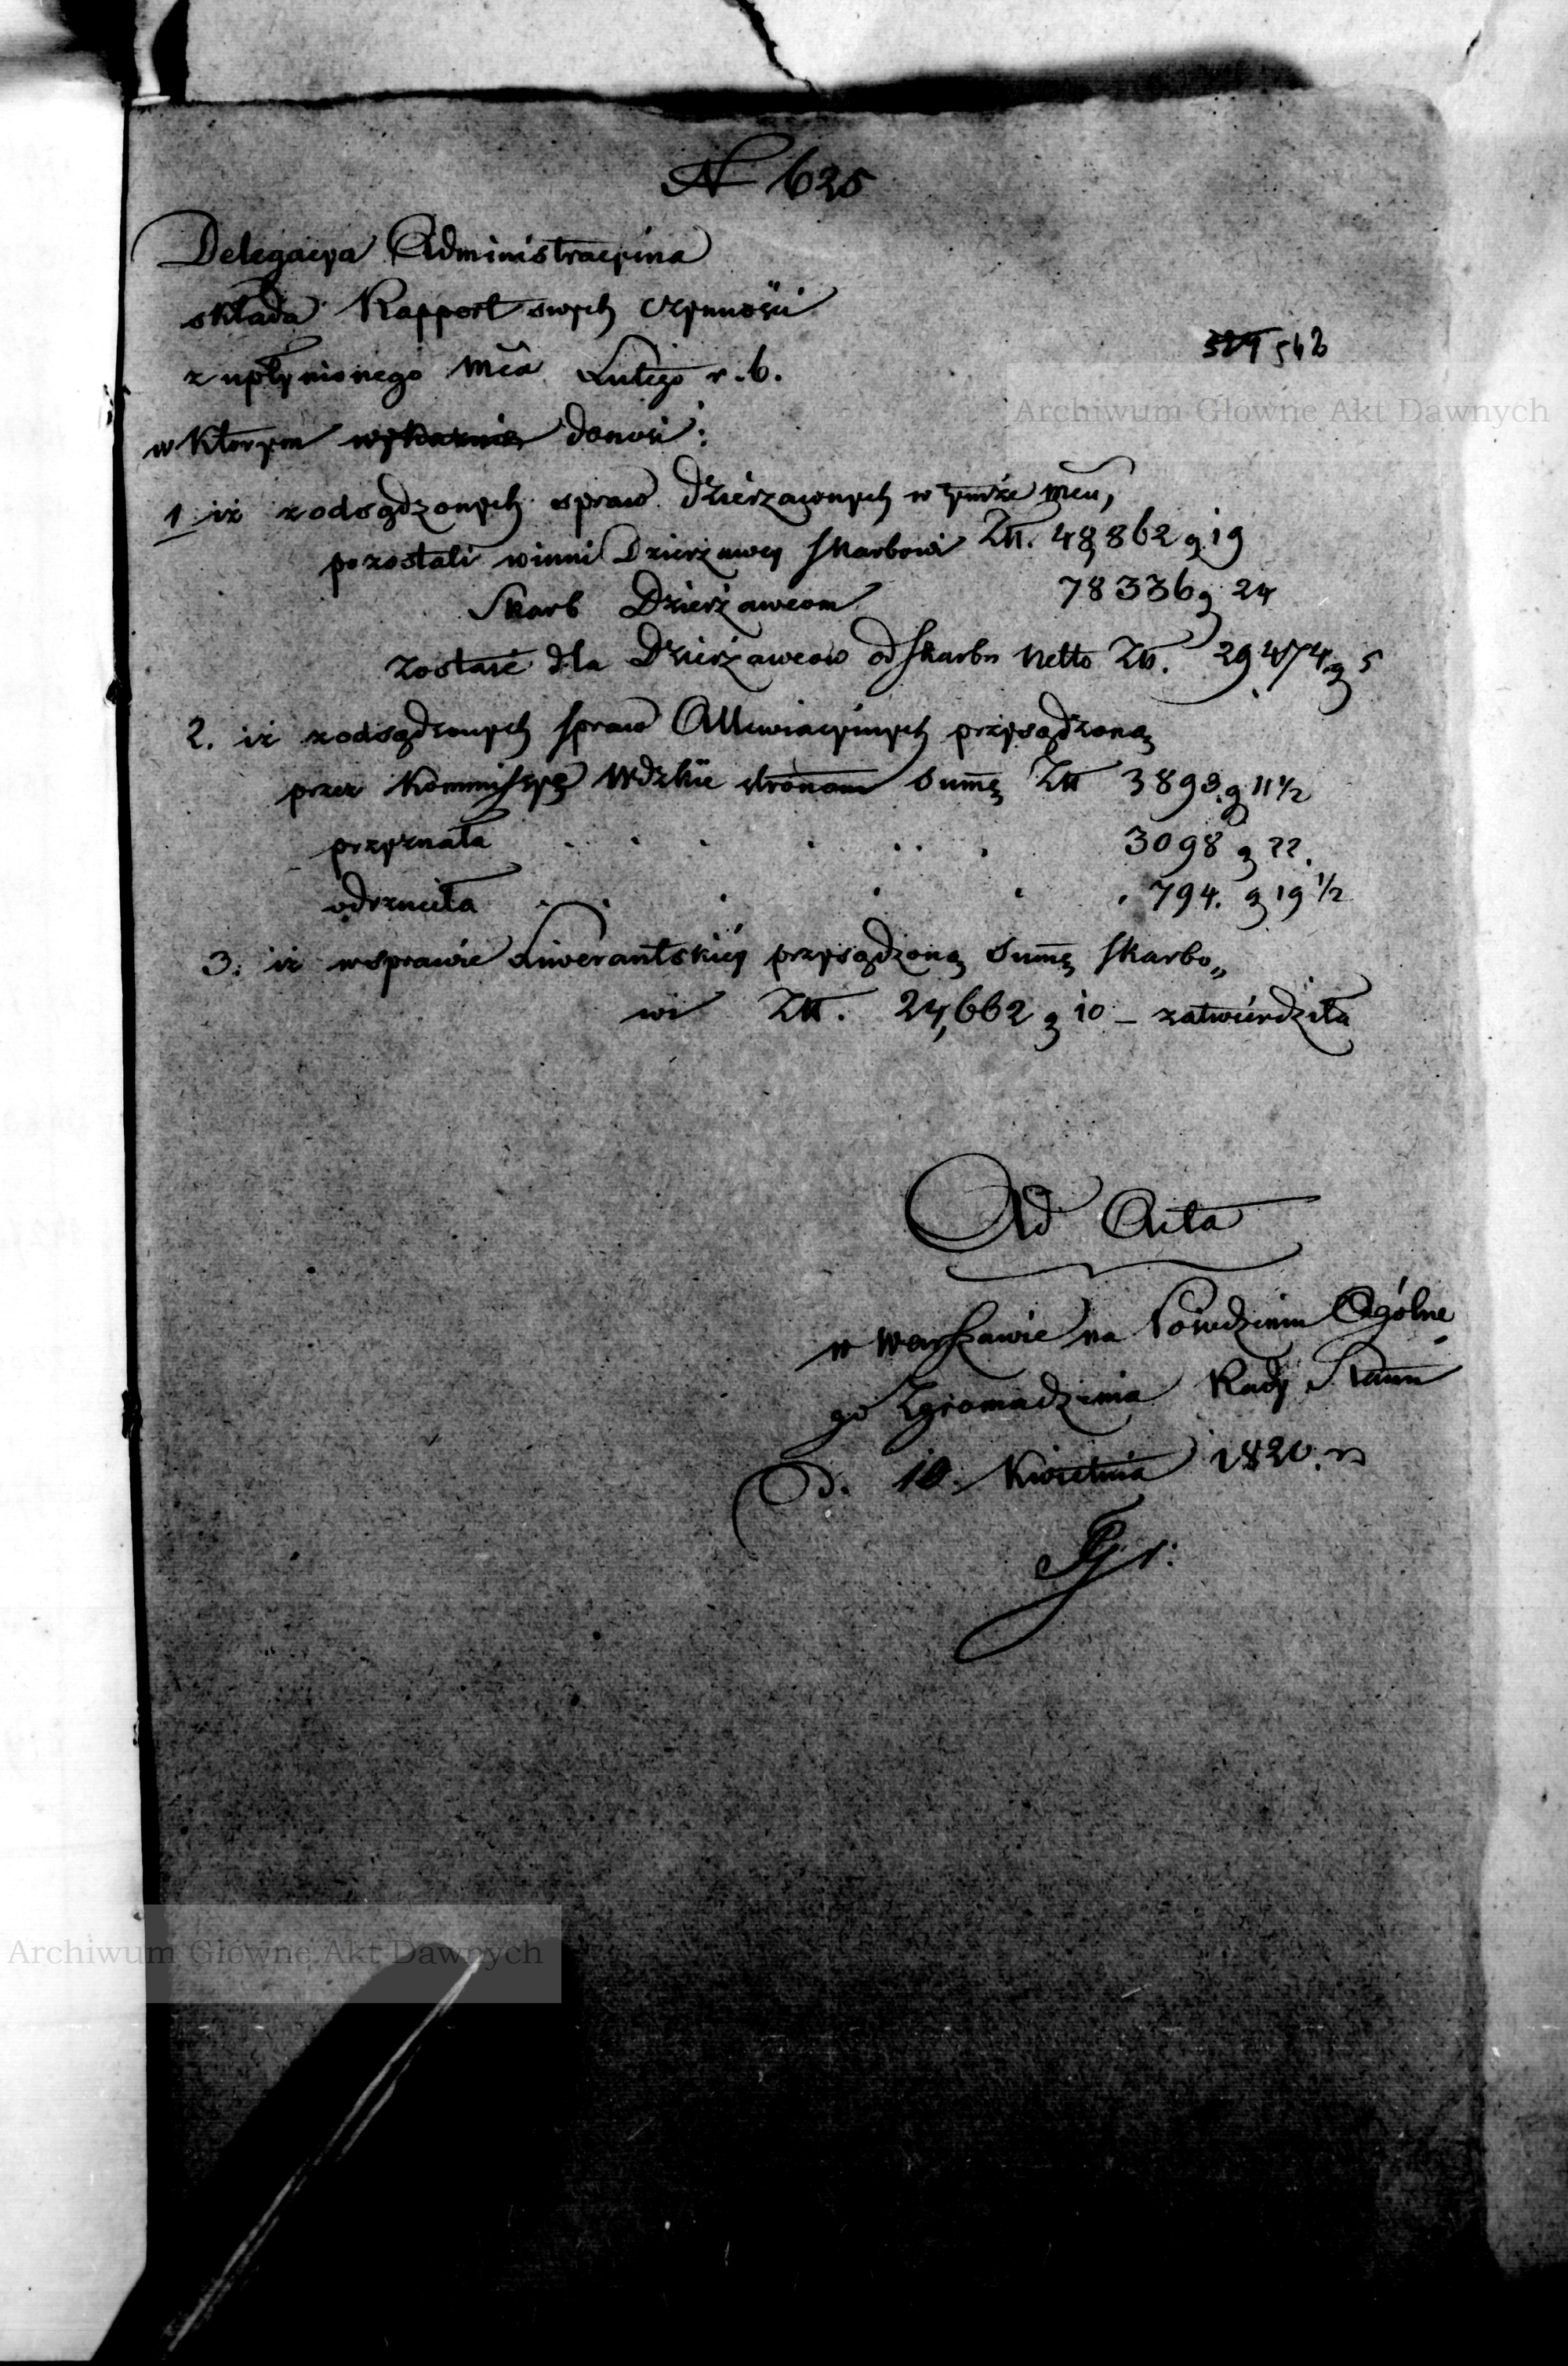 N 625
Delegacya Administracyina
składa Rapport swych czynności
z upłynionego Mca Lutego r. b.
w którym wykaznie donosi:
329 542
Archiwum Główne Akt Dawnych
1. iż z odsądzonych spraw Dzierzawnych w tymże mcu,
pozostali winni Dzierżawcy Skarbowi Złł. 48,862 g 19
Skarb Dzierżawcom 78336 g 24
zostaie dla Dzierżawców od Skarbu Netto Złł. 29474 g 5
2. iż z odsądzonych spraw Allewiacyinych przysądzoną
przez Kommissyę Wdzkie stronom Summę Złł 3893. g 11 1/2
przyznała . . . . . . . 3098 g 22.
odrzuciła . . . . . . 794. g 19 1/2
3. iż w sprawie Liwerantskiey przysądzoną Summę Skarbo„
wi Złł. 24,662 g 10 – zatwierdziła
Ad Acta
w Warszawie na Posiedzeniu Ogólne
go Zgromadzenia Rady Stanu
D. 10. Kwietnia 1820. r
Archiwum Główne Akt Dawnych